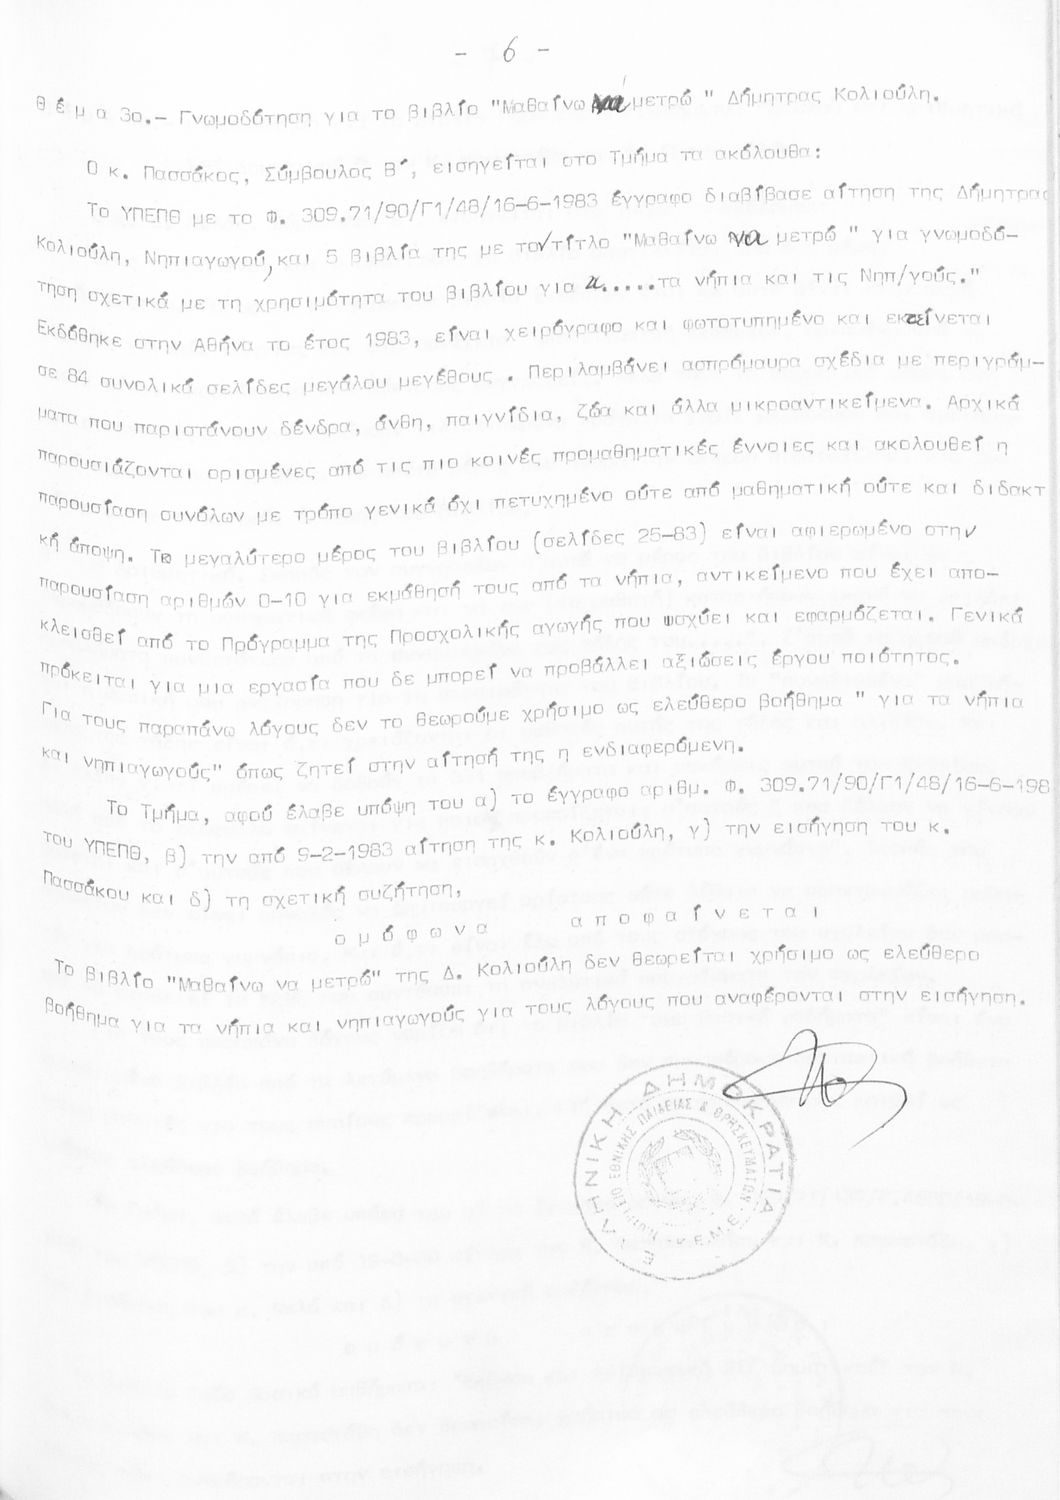 - 6 -
Θ έ μ α 3ο.- Γνωμοδότηση για το βιβλίο "Μαθαίνω να μετρώ " Δήμητρας Κολιούλη.
Ο κ. Πασσάκος, Σύμβουλος Β΄, εισηγείται στο Τμήμα τα ακόλουθα:
Το ΥΠΕΠΘ με το Φ. 309.71/90/Γ1/48/16-6-1983 έγγραφο διαβίβασε αίτηση της Δήμητρας
Κολιούλη, Νηπιαγωγού, και 5 βιβλία της με το τίτλο "Μαθαίνω να μετρώ " για γνωμοδό-
τηση σχετικά με τη χρησιμότητα του βιβλίου για "......τα νήπια και τις Νηπ/γούς."
Εκδόθηκε στην Αθήνα το έτος 1983, είναι χειρόγραφο και φωτοτυπημένο και εκτείνεται
σε 84 συνολικά σελίδες μεγάλου μεγέθους . Περιλαμβάνει ασπρόμαυρα σχέδια με περιγράμ-
ματα που παριστάνουν δένδρα, άνθη, παιγνίδια, ζώα και άλλα μικροαντικείμενα. Αρχικά
παρουσιάζονται ορισμένες από τις πιο κοινές προμαθηματικές έννοιες και ακολουθεί η
παρουσίαση συνόλων με τρόπο γενικά όχι πετυχημένο ούτε από μαθηματική ούτε και διδακτ
κή άποψη. Το μεγαλύτερο μέρος του βιβλίου (σελίδες 25-83) είναι αφιερωμένο στην
παρουσίαση αριθμών 0-10 για εκμάθησή τους από τα νήπια, αντικείμενο που έχει απο-
κλεισθεί από το Πρόγραμμα της Προσχολικής αγωγής που ισχύει και εφαρμόζεται. Γενικά
πρόκειται για μια εργασία που δε μπορεί να προβάλλει αξιώσεις έργου ποιότητος.
Για τους παραπάνω λόγους δεν το θεωρούμε χρήσιμο ως ελεύθερο βοήθημα " για τα νήπια
και νηπιαγωγούς" όπως ζητεί στην αίτησή της η ενδιαφερόμενη.
Το Τμήμα, αφού έλαβε υπόψη του α) το έγγραφο αριθμ. Φ. 309.71/90/Γ1/48/16-6-198
του ΥΠΕΠΘ, β) την από 9-2-1983 αίτηση της κ. Κολιούλη, γ) την εισήγηση του κ.
Πασσάκου και δ) τη σχετική συζήτηση,
ο μ ό φ ω ν α α π ο φ α ί ν ε τ α ι
Το βιβλίο "Μαθαίνω να μετρώ" της Δ. Κολιούλη δεν θεωρείται χρήσιμο ως ελεύθερο
βοήθημα για τα νήπια και νηπιαγωγούς για τους λόγους που αναφέρονται στην εισήγηση.
ΕΛΛΗΝΙΚΗ ΔΗΜΟΚΡΑΤΙΑ
ΥΠΟΥΡΓΕΙΟ ΕΘΝΙΚΗΣ ΠΑΙΔΕΙΑΣ & ΘΡΗΣΚΕΥΜΑΤΩΝ
Κ.Ε.Μ.Ε.